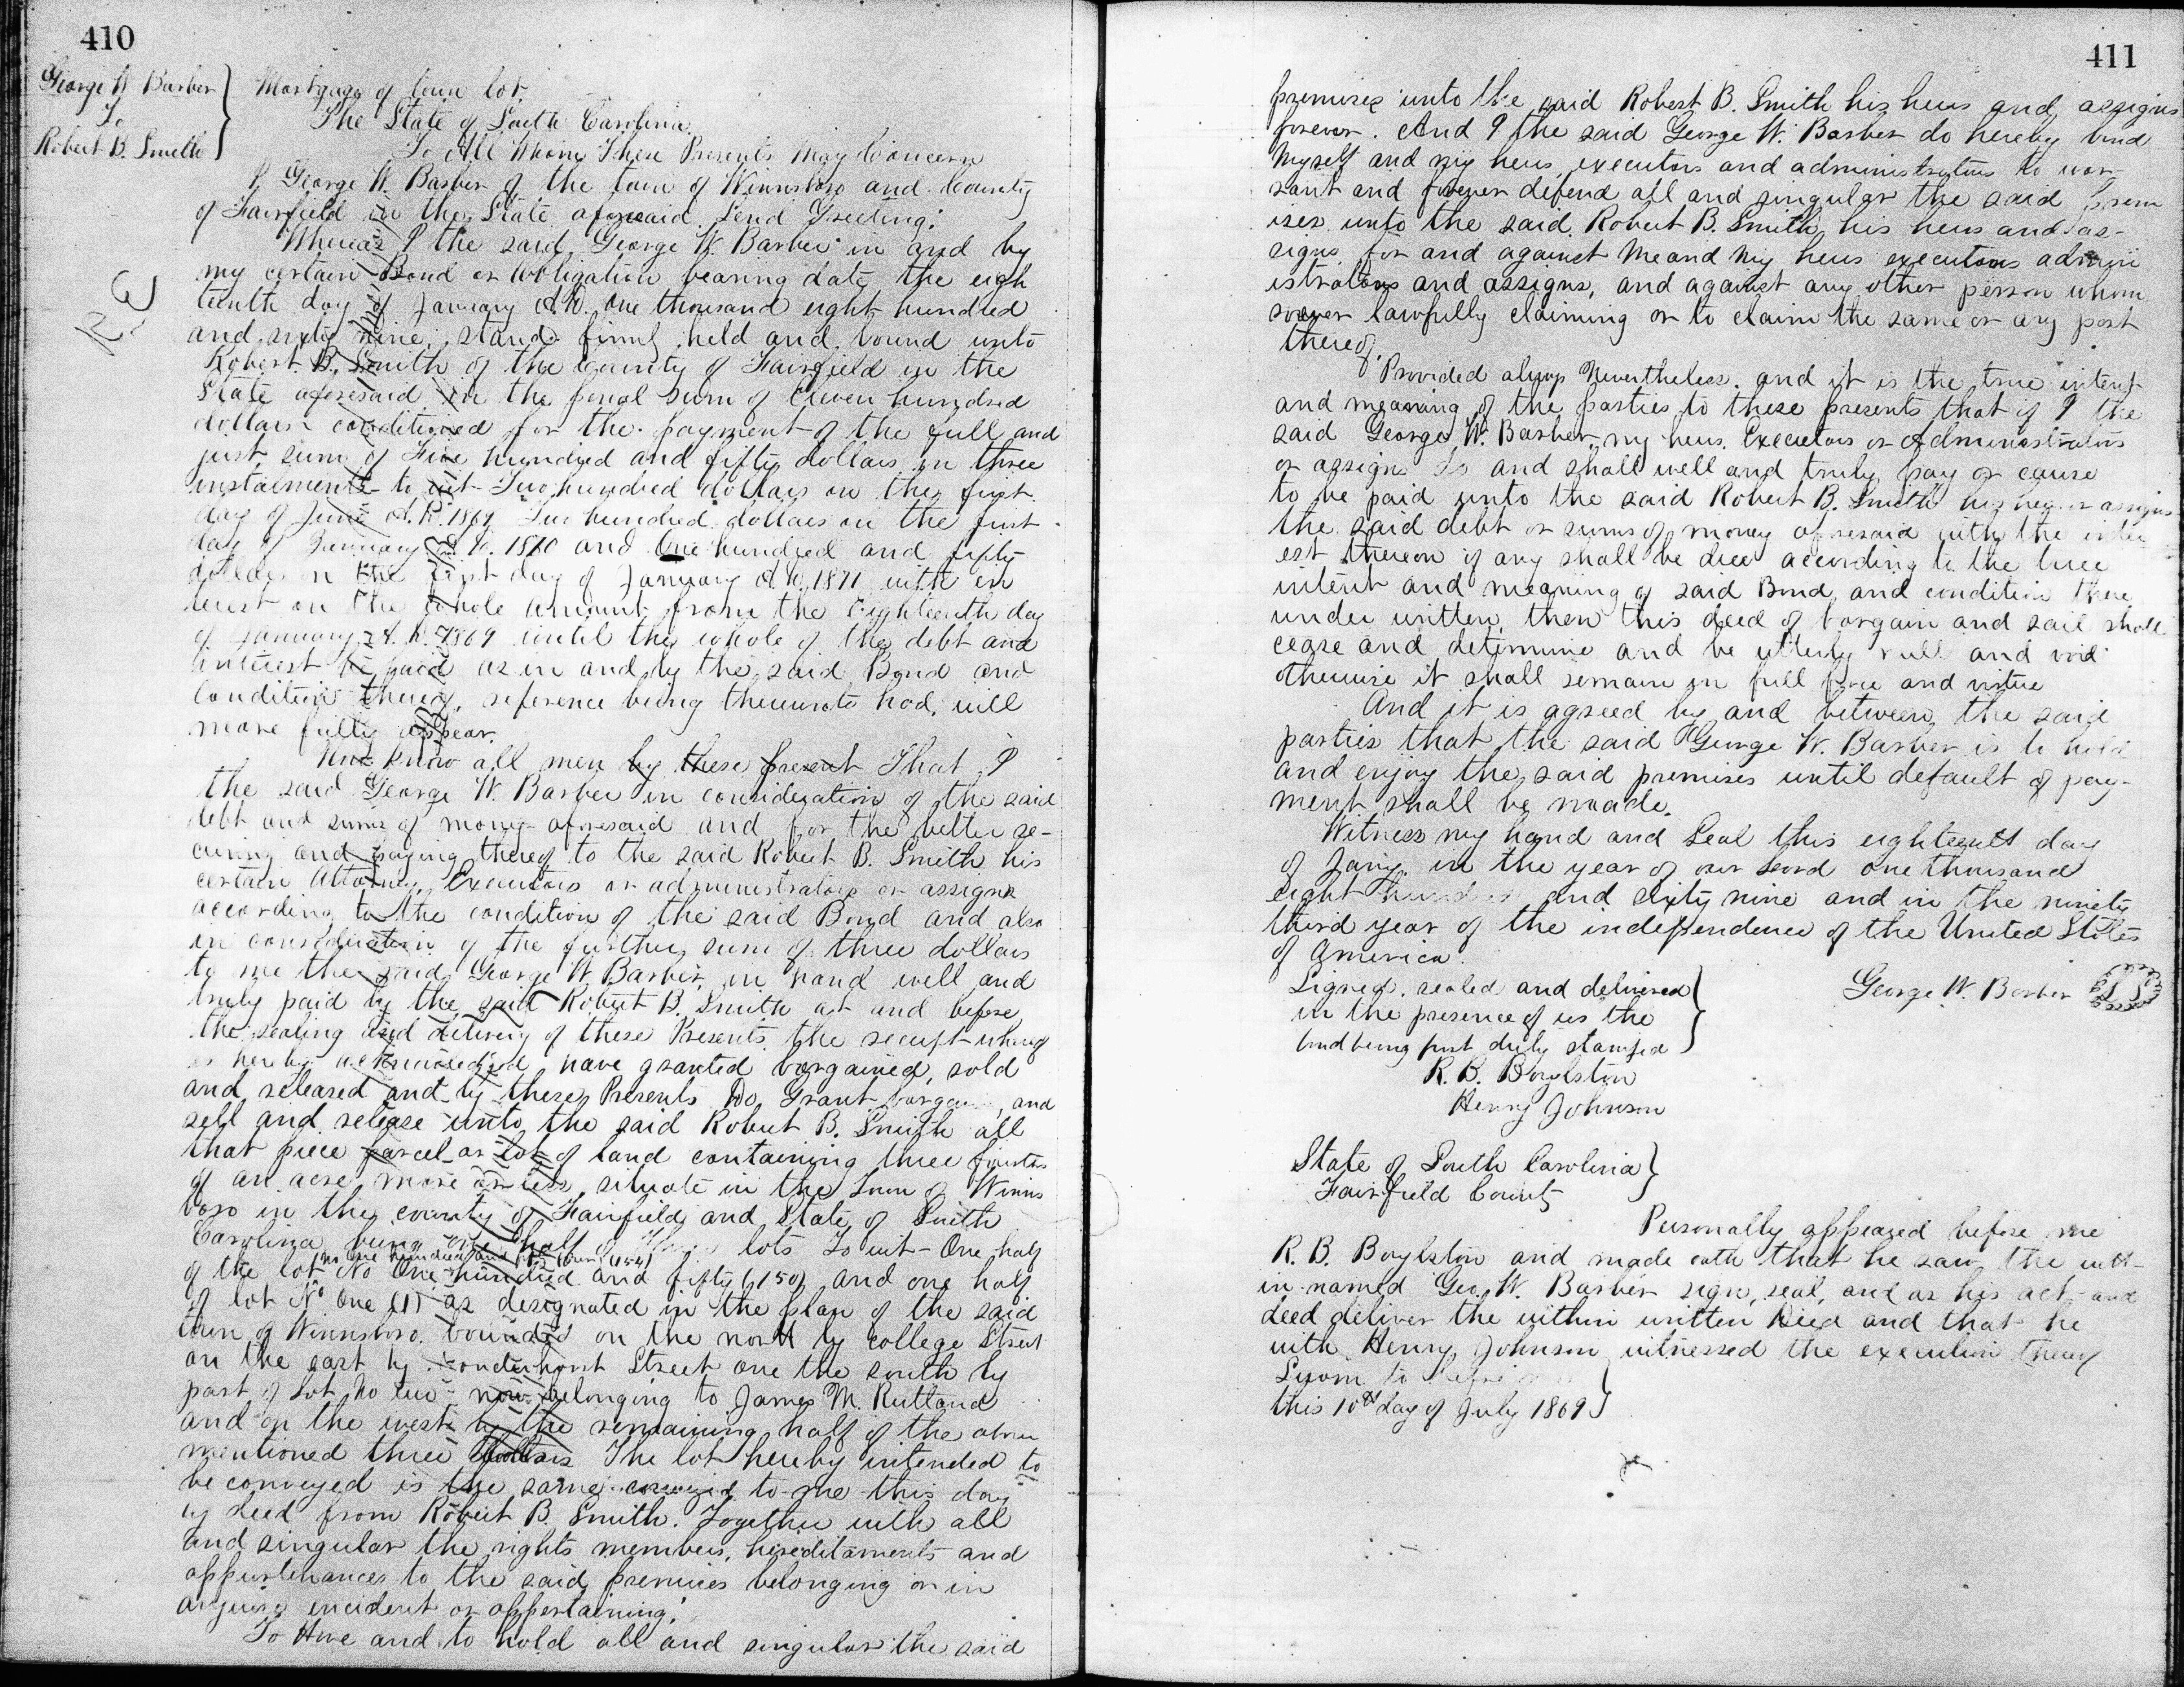 410
George W Barber
To
Robert B. Smith
Mortgage of town lot.
The State of South Carolina.
To All Whom These Presents May Concern
I, George W. Barber of the town of Winnsboro and County
of Fairfield in the State aforesaid Send Greeting:
Whereas I the said George W. Barber in and by
my certain Bond or Obligation bearing date the eigh
teenth day of January A.D. one thousand eight hundred
and sixty nine, stands firmly held and bound unto
Robert B. Smith of the County of Fairfield in the
State aforesaid in the penal Sum of Eleven hundred
dollars conditioned for the payment of the full and
just sum of Five hundred and fifty dollars in three
instalments to wit Two hundred dollars on the first
day of June A.D. 1869 Two hundred dollars on the first
day of January A.D. 1870 and One hundred and fifty
dollars on the first day of January A.D. 1871 with in
terest on the whole amount from the Eighteenth day
of January A.D. 1869 until the whole of the debt and
interest be paid as in and by the said Bond and
Condition thereof, reference being thereunto had, will
more fully appear.
Now Know all men by these present That I
the said George W. Barber in consideration of the said
debt and sums of money aforesaid and for the better se-
curing and paying thereof to the said Robert B. Smith his
certain Attorney, Executors or administrators or assigns
according to the condition of the said Bond and also
in consideration of the further sum of three dollars
to me the said George W Barber, in hand well and
truly paid by the said Robert B. Smith at and before
the sealing and delivery of these Presents the receipt whereof
is hereby acknowledged have granted bargained, sold
and released and by these Presents Do Grant bargain, and
sell and release unto the said Robert B. Smith all
that piece parcel or lot of land containing three fourths
of an acre more or less, situate in the Town of Winns
boro in the county of Fairfield and State of South
Carolina being one half of lots To wit - One half
No One hundred and fifty four (154)
of the lot No One hundred and fifty (150) and one half
of lot No One (1) as designated in the plan of the said
town of Winnsboro. bounded on the north by College Street
on the east by Vonderhorst Street one the south by
part of Lot No two now belonging to James M. Rutland
and on the west by the remaining half of the above
mentioned three The lot hereby intended to
be conveyed is the same conveyed to me this day
by deed from Robert B. Smith. Together with all
and singular the rights members, hereditaments and
appurtenances to the said premises belonging or in
anywise incident or appertaining.
To Have and to hold all and singular the said
411
premises unto the said Robert B. Smith his heirs and assigns
forever. And I the said George W. Barber do hereby bind
Myself and my heirs, executors and administrators to war-
rant and forever defend all and singular the said prem
ises unto the said Robert B. Smith his heirs and as-
signs for and against Me and My heirs executors admin
istrators and assigns, and against any other person whom
soever lawfully claiming or to claim the same or any part
thereof.
Provided always Nevertheless. and it is the true intent
and meaning of the parties to these presents that if I the
said George W. Barber, my heirs. Executors or Administrators
or assigns do and shall well and truly pay or cause
to be paid unto the said Robert B. Smith his heirs or assigns
the said debt or sums of money aforesaid with the inter
est thereon if any shall be due according to the true
intent and meaning of said Bond and condition there
under written, then this deed of bargain and sail shall
cease and determine and be utterly null and void
otherwise it shall remain in full force and virtue
And it is agreed by and between the said
parties that the said George W. Barber is to hold
and enjoy the said premises until default of pay-
ment shall be made.
Witness my hand and Seal this eighteenth day
of Jany. in the year of our Lord one thousand
eight hundred and sixty nine and in the ninety
third year of the independence of the United States
of America.
Signed, sealed and delivered
in the presence of us the
bond being first duly stamped
George W. Barber L S
R. B. Boylston
Henry Johnson
State of South Carolina
Fairfield County
Personally appeared before me
R. B. Boylston and made oath that he saw the with-
in named Geo. W. Barber sign, seal, and as his act and
deed deliver the within written Deed and that he
with Henry Johnson witnessed the execution thereof
Sworn to before me
this 10th day of July 1869